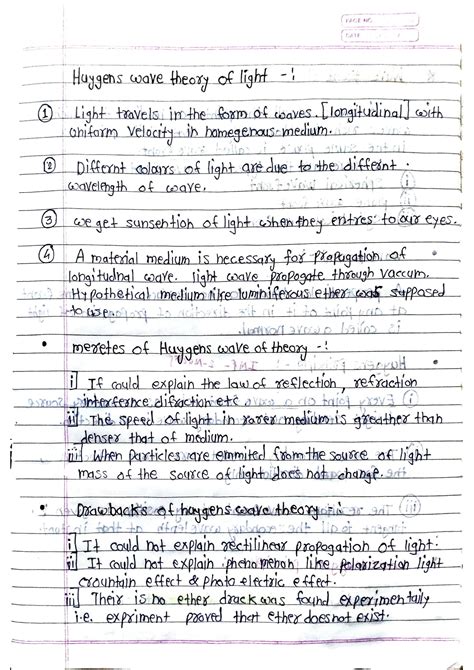 PAGE NO.
DATE
Huygens wave theory of light -:
① Light travels in the form of waves. [longitudinal] with
uniform velocity in homegenous medium.
② Differnt colours of light are due to the differnt
wavelength of wave.
③ we get sunsention of light when they entres to our eyes.
④ A material medium is necessary for propagation of
longitudnal wave. light wave propogate through vaccum.
Hypothetical medium like luminiferous ether was supposed
to use
• meretes of Huygens wave of theory -:
i] If could explain the law of reflection, refraction
interference difraction etc
ii] The speed of light in rarer medium is greather than
denser that of medium.
iii] When particles are emmited from the source of light
mass of the source of light does not change.
• Drawbacks of huygens wave theory :
i] It could not explain rectilinear propagation of light.
ii] It could not explain phenomenon like polarization light
crountain effect & photo electric effect.
iii] Their is no ether drack was found experimentally
i.e. expriment proved that ether does not exist.